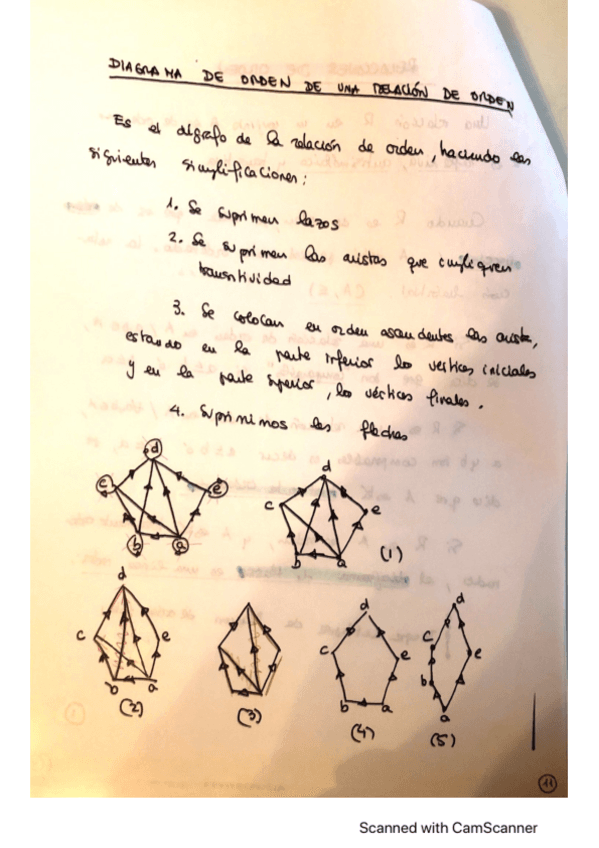 DIAGRAMA DE ORDEN DE UNA RELACIÓN DE ORDEN
Es el digrafo de la relación de orden, haciendo las
siguientes simplificaciones:
1. Se suprimen lazos
2. Se suprimen las aristas que cumplen
transitividad
3. Se colocan en orden ascendentes las arista,
estando en la parte inferior los vertices iniciales
y en la parte superior, los vértices finales.
4. Suprimimos las flechas
d
c e
b a
d
c e
b a
(1)
d
c e
b a
(2)
(3)
d
c e
b a
(4)
d
c e
b
a
(5)
11
Scanned with CamScanner